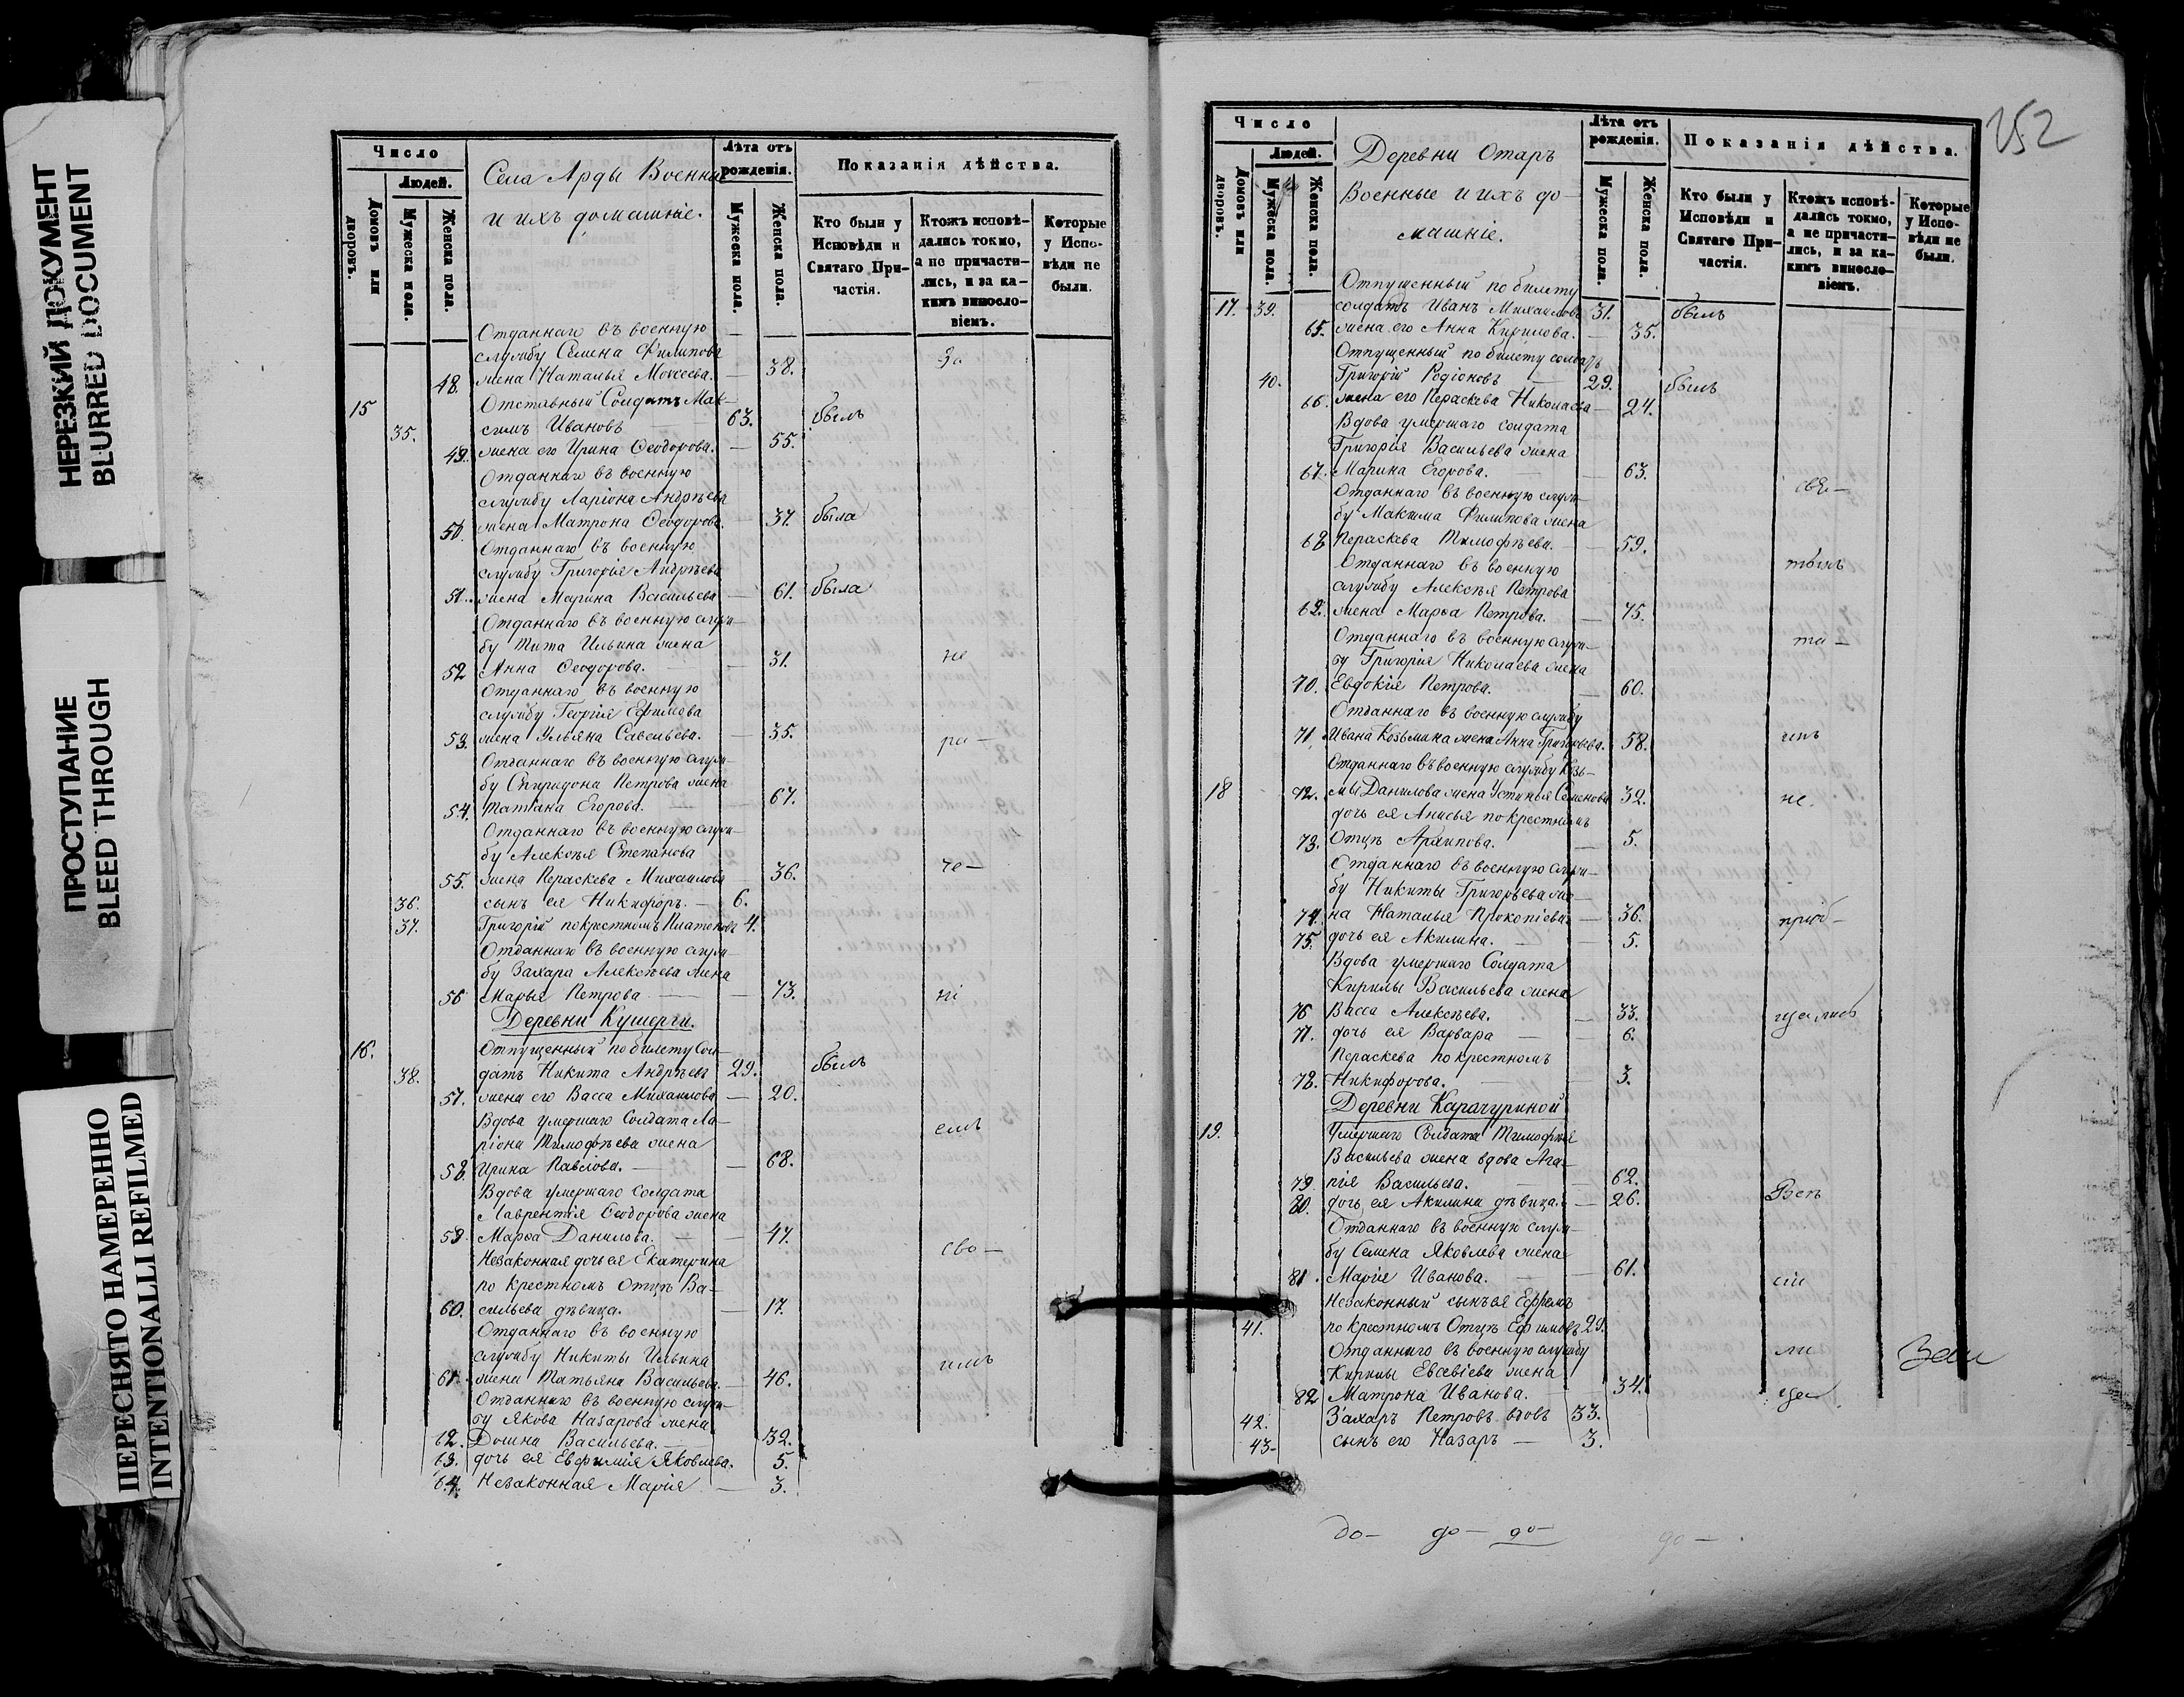 НЕРЕЗКИЙ ДОКУМЕНТ
BLURRED DOCUMENT
ПРОСТУПАНИЕ
BLEED THROUGH
ПЕРЕСНЯТО НАМЕРЕННО
INTENTIONALLI REFILMED
Число
Людей.
Домовъ или дворовъ.
Мужеска пола.
Женска пола.
Села Арды Военные
и ихъ домашніе.
Лѣта отъ рожденія.
Мужеска пола.
Женска пола.
Показанія дѣйства.
Кто были у Исповѣди и Святаго Причастія.
Ктожъ исповѣдались токмо, а не причастились, и за какимъ винословіемъ.
Которые у Исповѣди не были.
Отданнаго въ военную —
службу Семена Филипова
48. жена Наталья Моисеева. — 38. За
15 Отставный Солдатъ Мак-
35. симъ Ивановъ — 63. былъ
49. жена его Ирина Ѳеодорова. — 55.
Отданнаго въ военную
службу Ларіона Андрѣева
50. жена Матрона Ѳеодорова. 37. была
Отданнаго въ военную
службу Григорія Андрѣева
51. жена Марина Васильева — 61. была
Отданнаго въ военную служ-
бу Тита Ильина жена
52 Анна Ѳеодорова. — 31. не
Отданнаго въ военную
службу Георгія Ефимова
53. жена Ульяна Савельева. — 35. ра-
Отданнаго въ военную служ-
бу Спиридона Петрова жена
54. Татіана Егорова. — 67.
Отданнаго въ военную служ-
бу Алексѣя Степанова
55. жена Параскева Михаилова 36. че-
36. сынъ ея Никифоръ. — 6.
37. Григорій по крестномъ Платоновъ 4.
Отданнаго въ военную служ-
бу Захара Алексѣева жена
56 Марья Петрова — 73. ні
Деревни Кушерги.
16. Отпущенный по билету Сол-
38. датъ Никита Андрѣевъ 29. былъ
57. жена его Васса Михаилова — 20.
Вдова умершаго Солдата Ла-
ріона Тимофѣева жена емъ
58. Ирина Павлова. — 68.
Вдова умершаго солдата
Лаврентія Ѳеодорова жена
59. Марѳа Данилова. — 47. сво-
Незаконная дочь ея Екатерина
по крестномъ Отцѣ Ва-
60. сильева дѣвица. — 17.
Отданнаго въ военную
службу Никиты Ильина
61. жена Татьяна Васильева. — 46. имъ
Отданнаго въ военную служ-
бу Якова Назарова жена
62. Домна Васильева. — 32.
63. дочь ея Евфимія Яковлева. 5.
64. Незаконная Марія — 3.
252
Число
Людей.
Домовъ или дворовъ.
Мужеска пола.
Женска пола.
Деревни Отаръ
Военные и ихъ до-
машніе.
Лѣта отъ рожденія.
Мужеска пола.
Женска пола.
Показанія дѣйства.
Кто были у Исповѣди и Святаго Причастія.
Ктожъ исповѣдались токмо, а не причастились, и за какимъ винословіемъ.
Которые у Исповѣди не были.
Отпущенный по билету
17. 39. солдатъ Иванъ Михаиловъ 31. былъ
65. жена его Анна Кирилова. — 35.
Отпущенный по билету солдатъ
40. Григорій Родіоновъ — 29. былъ
66. жена его Параскева Николаева — 24.
Вдова умершаго солдата
Григорія Васильева жена
67. Марина Егорова. — 63.
Отданнаго въ военную служ- свя-
бу Максима Филипова жена
68 Параскева Тимофѣева. — 59.
Отданнаго въ военную тымъ
службу Алексѣя Петрова
69. жена Марѳа Петрова. — 75.
Отданнаго въ военную служ- та-
бу Григорія Николаева жена
70. Евдокія Петрова. — 60.
Отданнаго въ военную службу
71. Ивана Козьмина жена Анна Григорьева. 58. инъ
Отданнаго въ военную службу Козь-
18 72. мы Данилова жена Устинья Семенова 32. не.
дочь ея Анисья по крестномъ
73. Отцѣ Архипова. — 5.
Отданнаго въ военную служ-
бу Никиты Григорьева же-
74. на Наталья Прокопіева — 36. пріоб-
75. дочь ея Акилина. — 5.
Вдова умершаго Солдата
Кирилы Васильева жена
76 Васса Алексѣева. — 33. щались
77. дочь ея Варвара — 6.
Параскева по крестномъ
78. Никифорова. — 3.
Деревни Карачуриной
19. Умершаго Солдата Тимофѣя
Васильева жена вдова Ага-
79 пія Васильева. — 62.
80. дочь ея Акилина дѣвица. — 26.
Отданнаго въ военную служ-
бу Семена Яковлева жена
81. Марія Иванова. — 61. сіи
Незаконный сынъ ея Ефремъ
41. по крестномъ Отцѣ Ефимовъ 29.
Отданнаго въ военную службу ли
Кирилы Евсевіева жена
82 Матрона Иванова. — 34.
42. Захаръ Петровъ вдовъ 33.
43. сынъ его Назаръ — 3.
до- до- до- до-